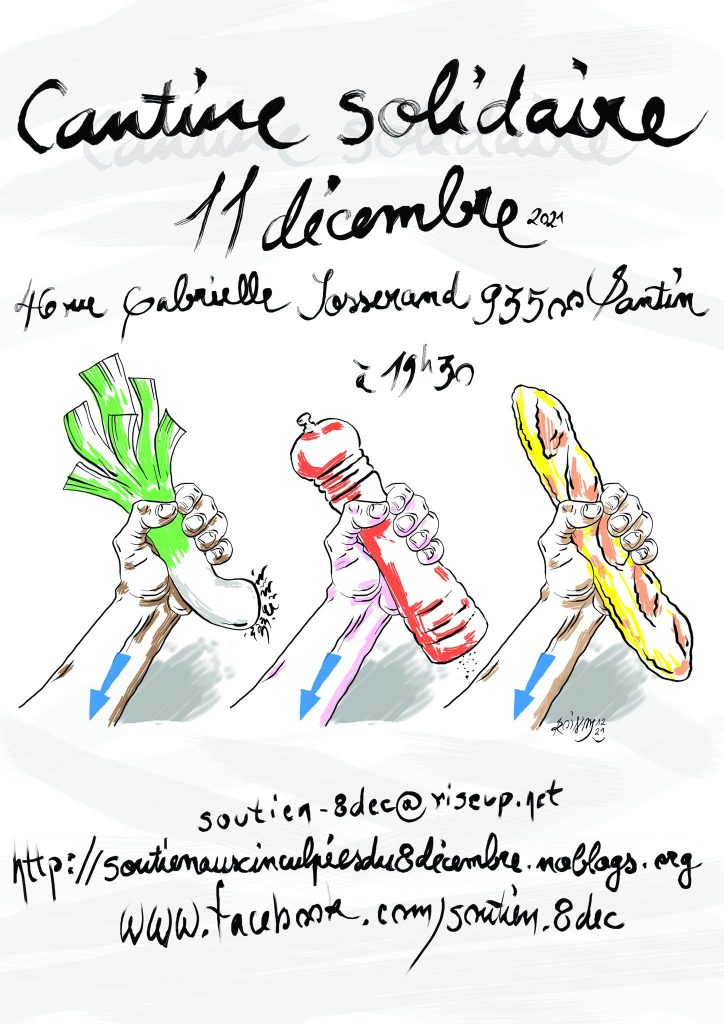 Cantine solidaire
11 décembre 2021
46 rue Gabrielle Josserand 93500 Pantin
à 19h30
12
21
soutien-8dec@riseup.net
http://soutienauxinculpéesdu8décembre.noblogs.org
www.facebook.com/soutien.8dec